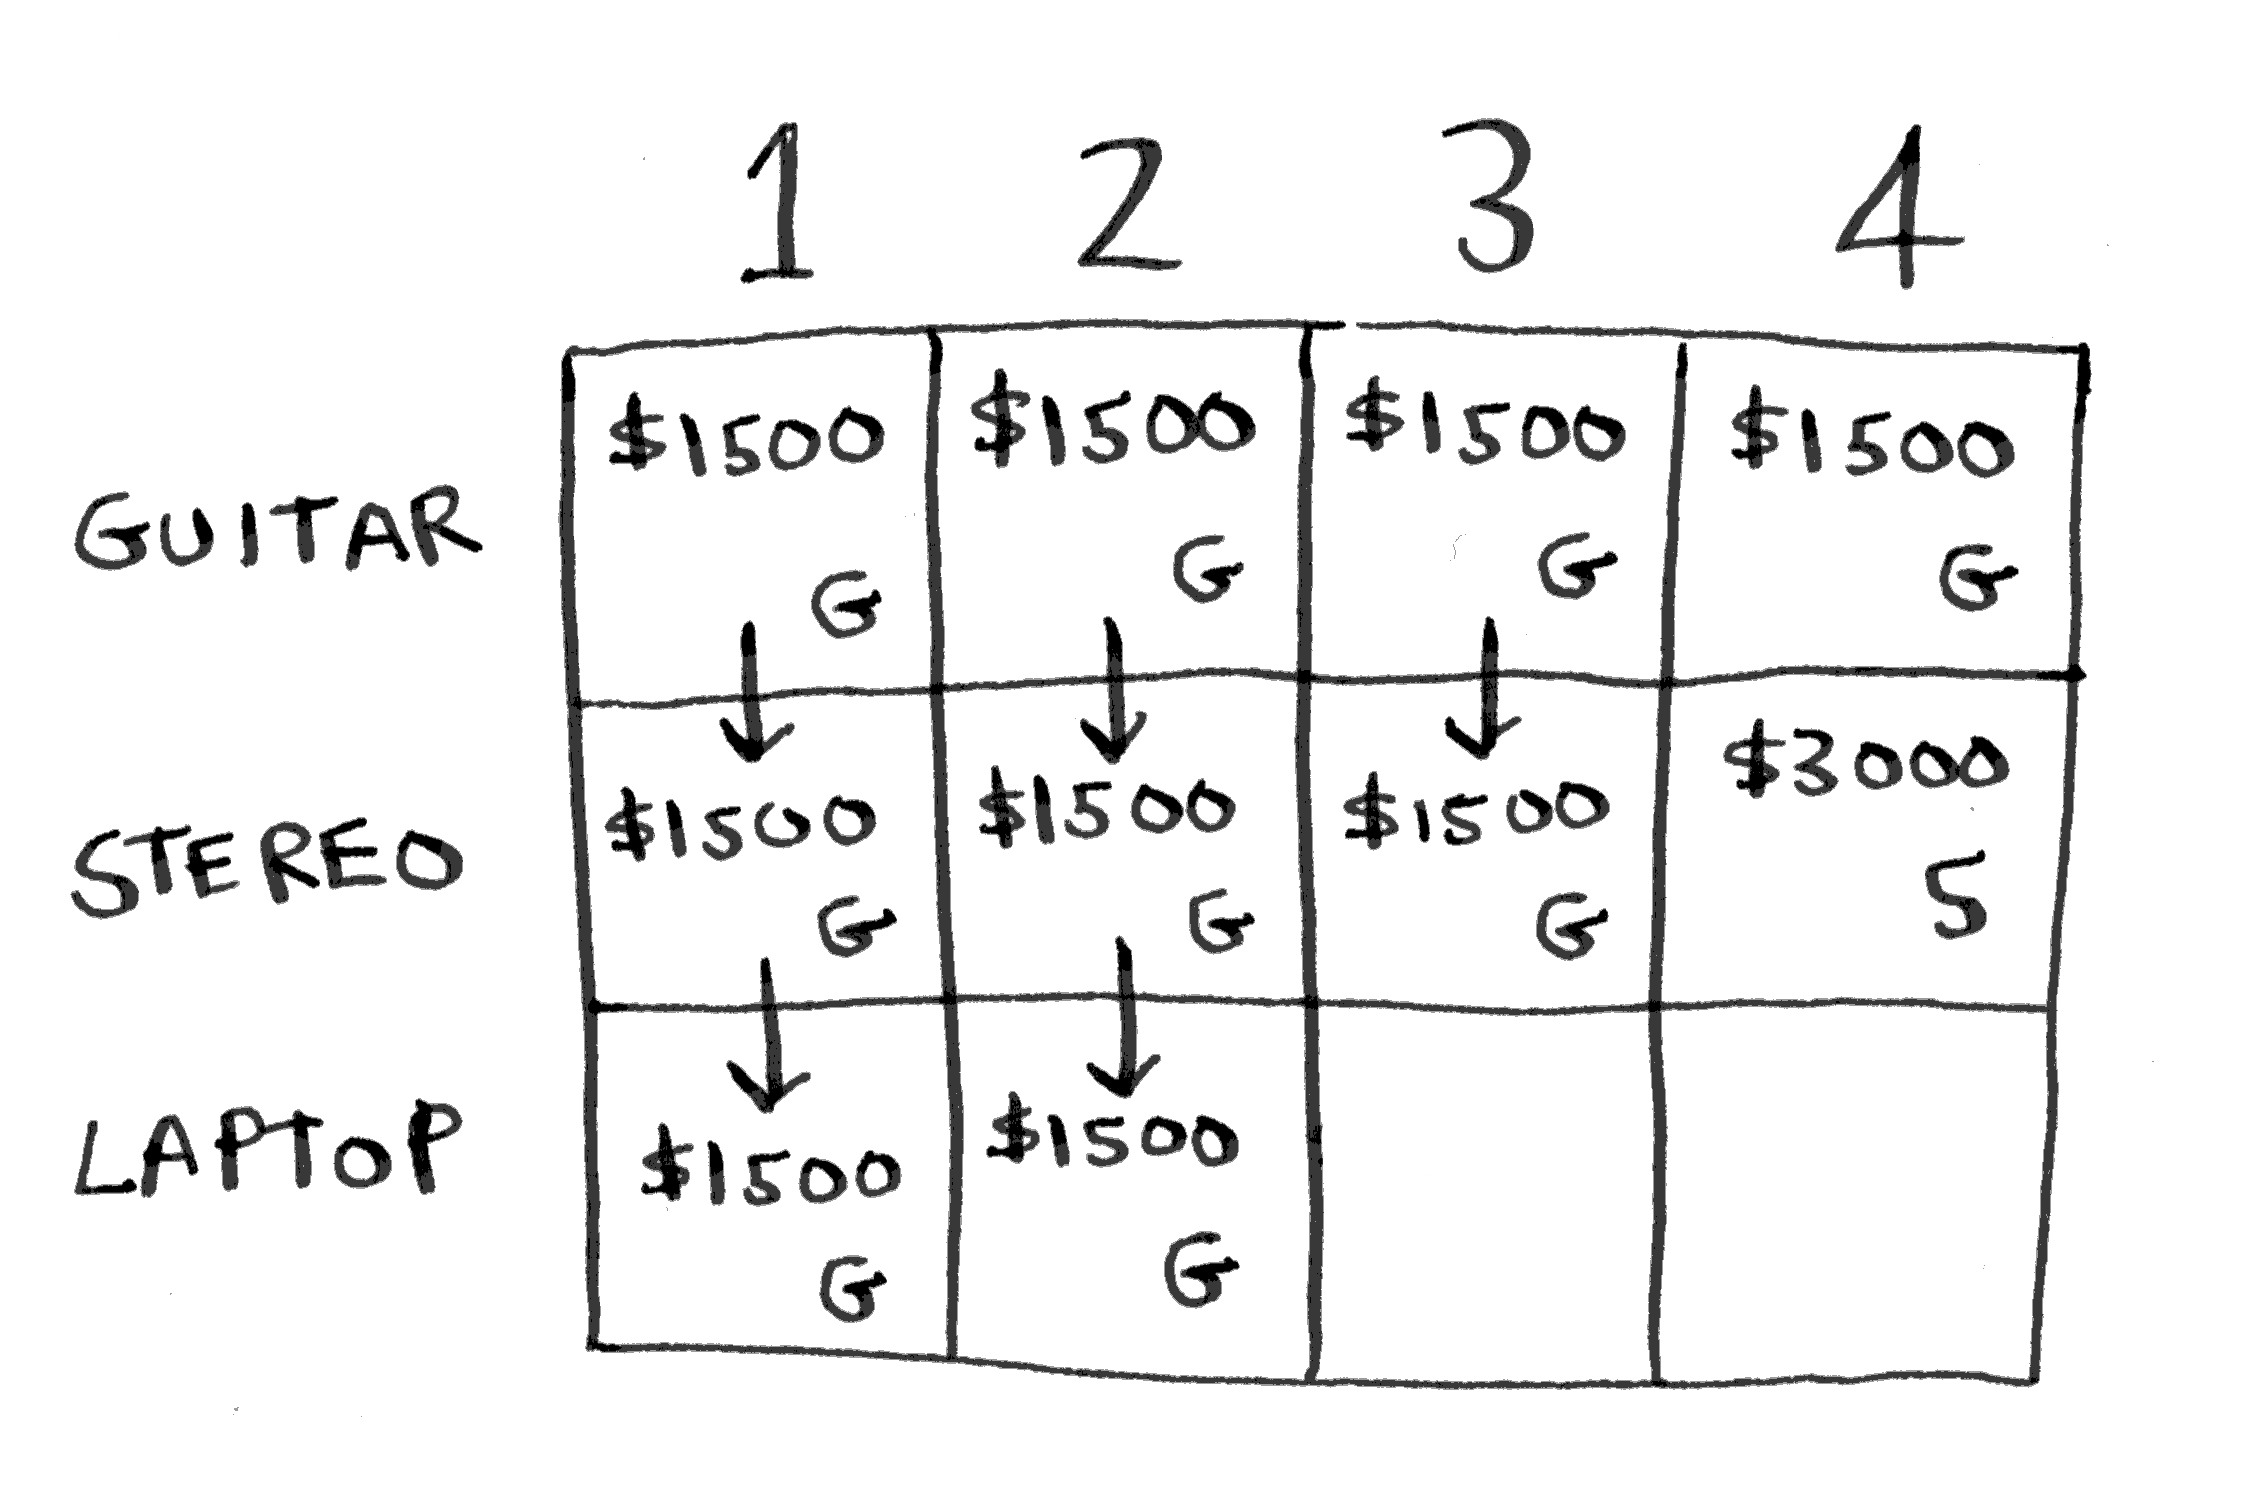 1 2 3 4
GUITAR $1500 G $1500 G $1500 G $1500 G
STEREO $1500 G $1500 G $1500 G $3000 S
LAPTOP $1500 G $1500 G